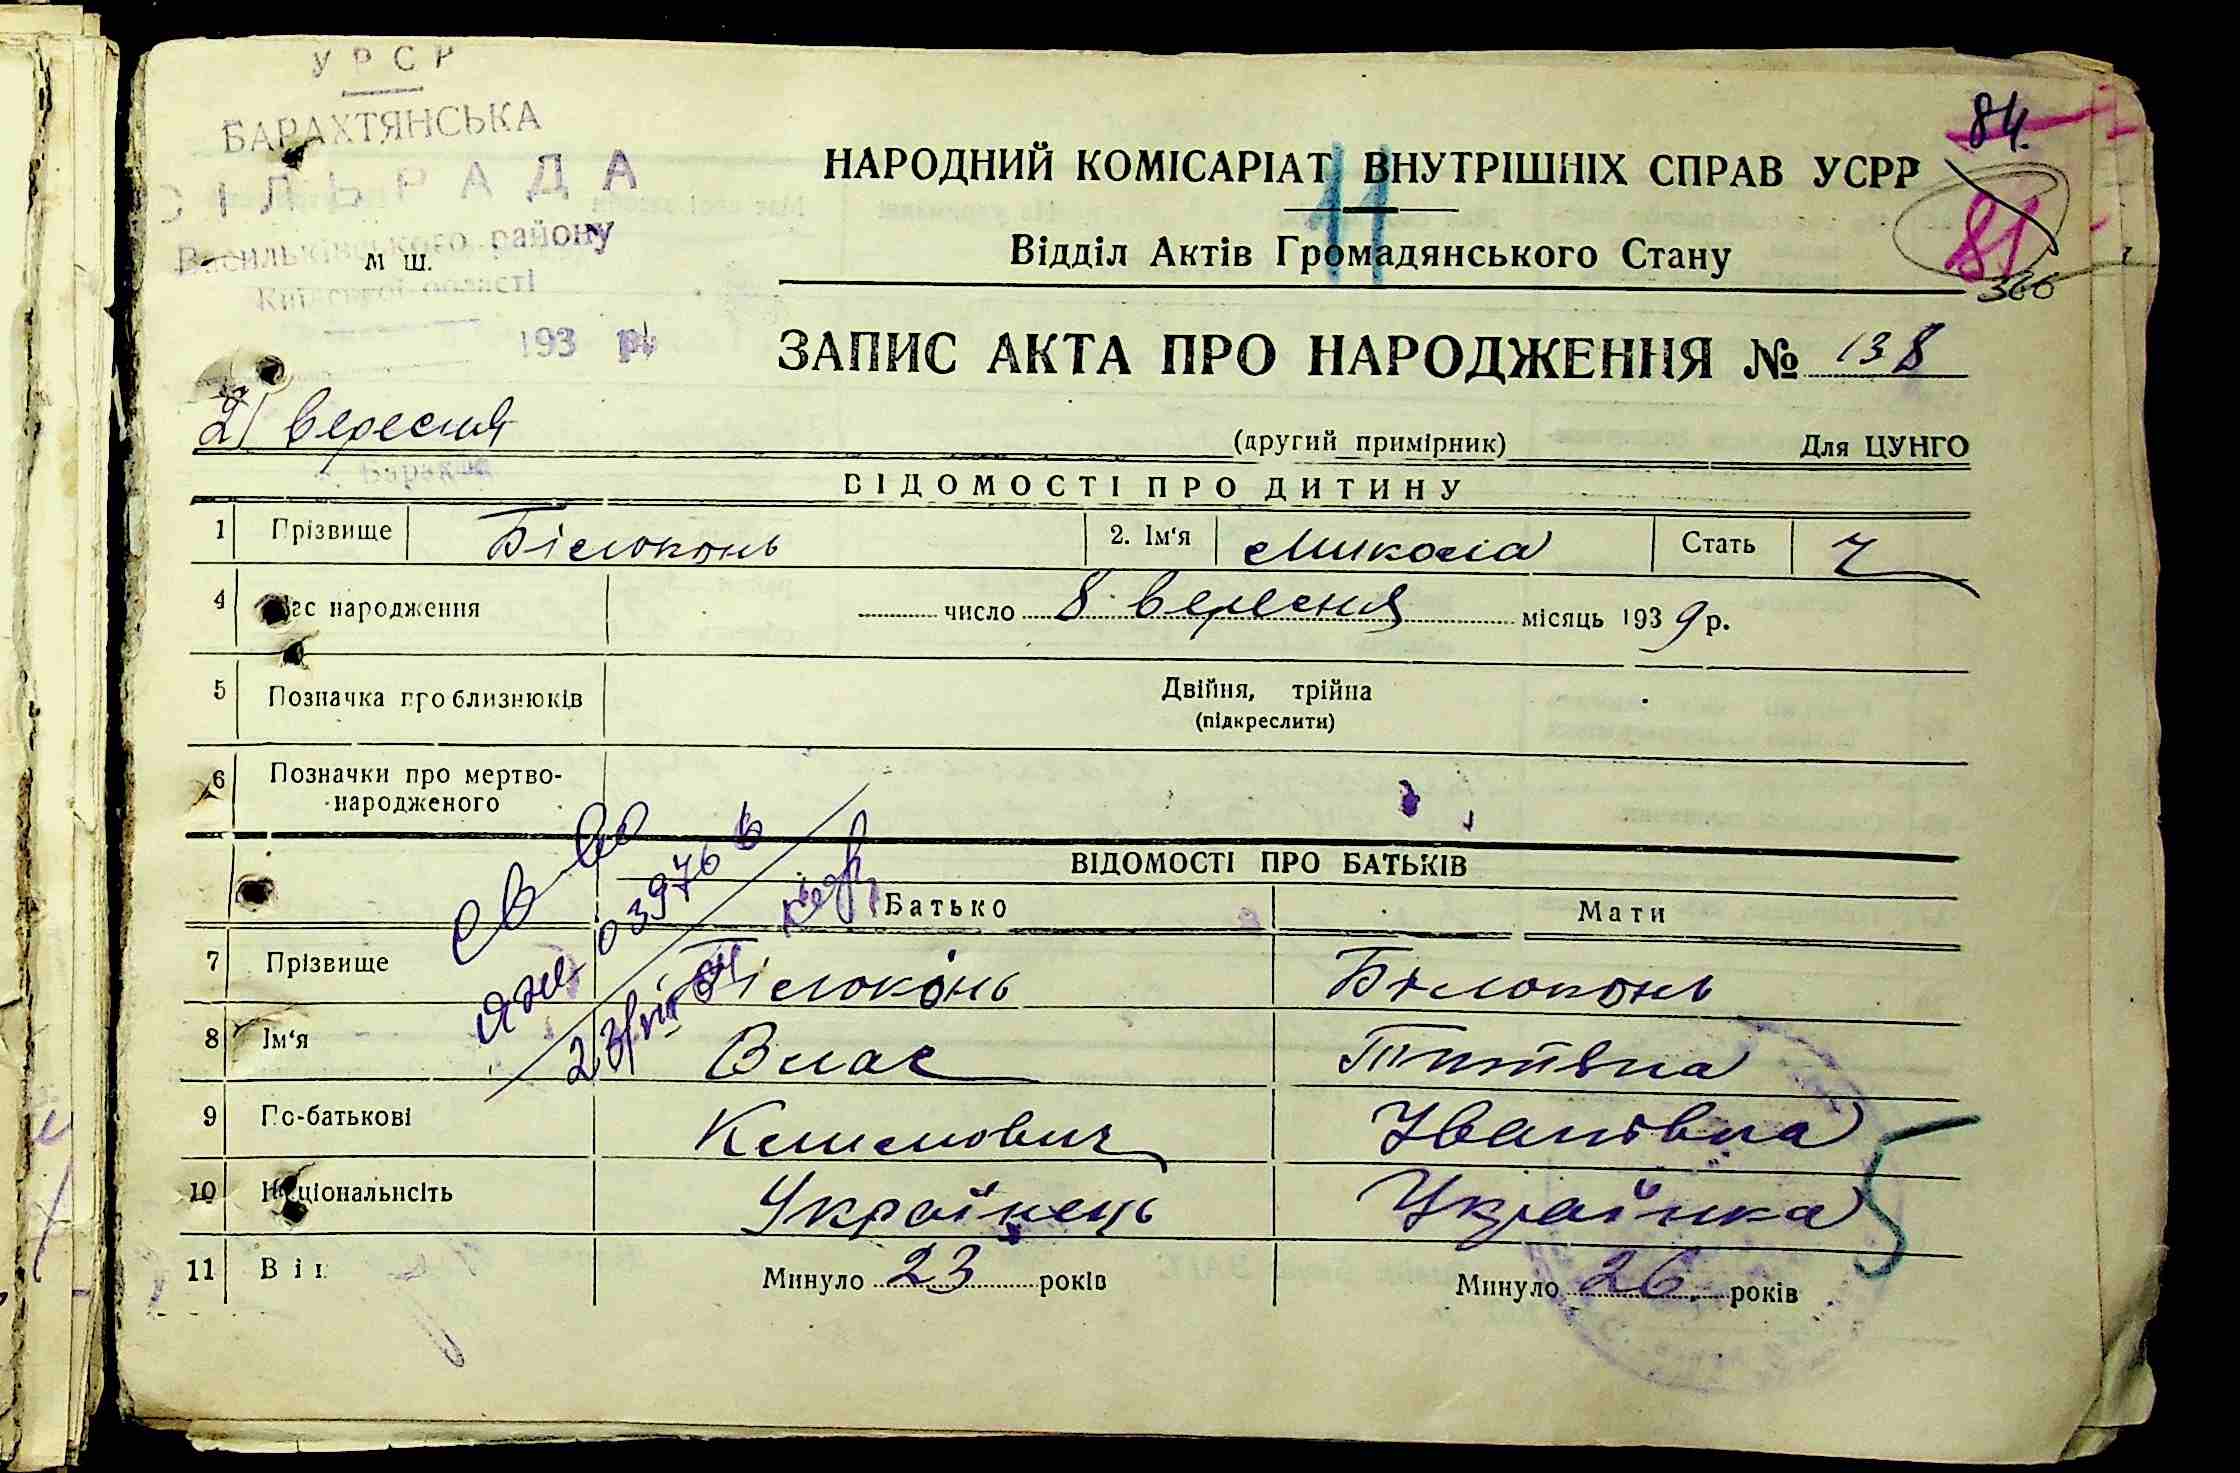 УРСР
БАРАХТЯНСЬКА
СІЛЬРАДА
Васильківського району
Київської області
м ш.
193 р.
84.
81
366
11
НАРОДНИЙ КОМІСАРІАТ ВНУТРІШНІХ СПРАВ УСРР
Відділ Актів Громадянського Стану
ЗАПИС АКТА ПРО НАРОДЖЕННЯ № 138
21 вересня
(другий примірник) Для ЦУНГО
ВІДОМОСТІ ПРО ДИТИНУ
1 Прізвище Білоконь 2. Ім'я Микола Стать Ч
4 Час народження число 8 вересня місяць 1939 р.
5 Позначка про близнюків Двійня, трійна
(підкреслити)
6 Позначки про мертво-
народженого
ВІДОМОСТІ ПРО БАТЬКІВ
Батько Мати
7 Прізвище Білоконь Білоконь
8 Ім'я Влас
9 По-батькові Климович Іванівна
10 Національність Українець Українка
11 Вік Минуло 23 років Минуло 26 років
03976